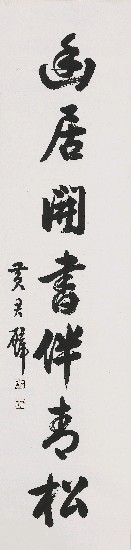 幽居開書伴青松
黄君璧